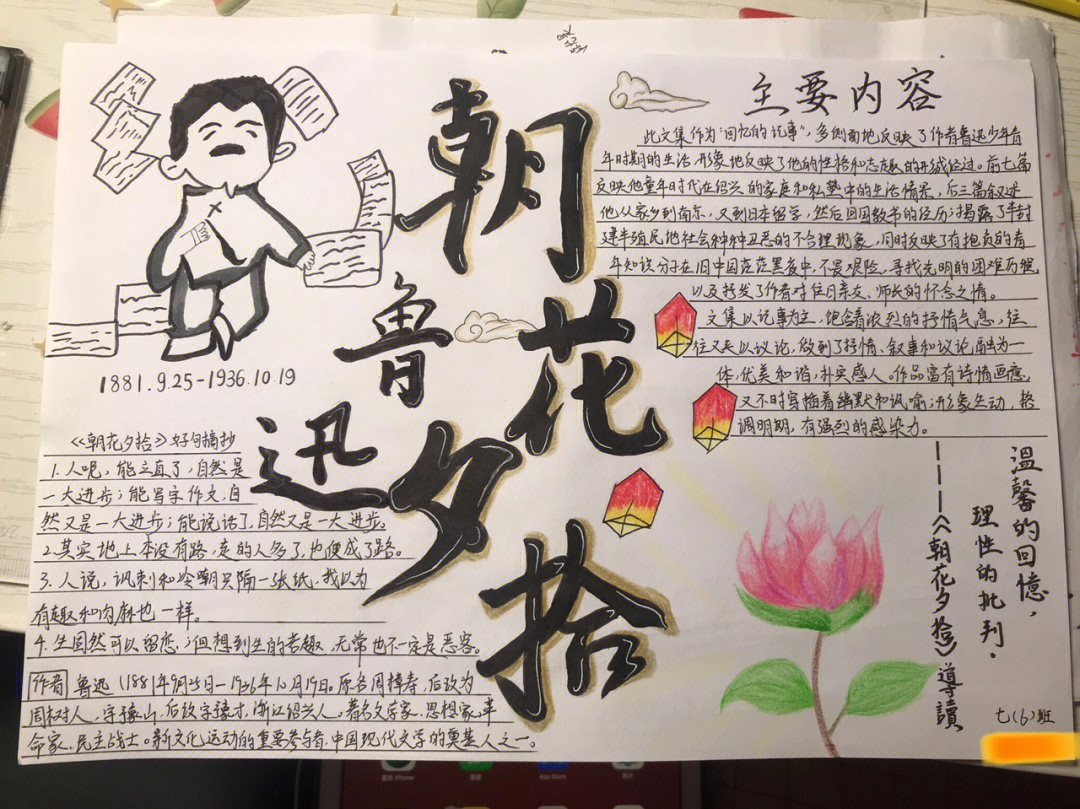 朝花夕拾
鲁迅
1881.9.25-1936.10.19
《朝花夕拾》好句摘抄
1.人呢，能立直了，自然是
一大进步；能写字作文，自
然又是一大进步；能说话了，自然又是一大进步。
2.其实地上本没有路，走的人多了，也便成了路。
3.人说，讽刺和冷嘲只隔一张纸，我以为
有趣和肉麻也一样。
4.生固然可以留恋，；但想到生的苦趣，无常也不一定是恶客。
作者 鲁迅（1881年9月25日—1936年10月19日。原名周樟寿，后改为
周树人，字豫山，后改字豫才，浙江绍兴人。著名文学家、思想家、革
命家、民主战士。新文化运动的重要参与者，中国现代文学的奠基人之一。
主要内容
此文集作为“回忆的记事”，多侧面地反映了作者鲁迅少年青
年时期的生活，形象地反映了他的性格和志趣的形成经过。前七篇
反映他童年时代在绍兴的家庭和私塾中的生活情景，后三篇叙述
他从家乡到南京，又到日本留学，然后回国教书的经历；揭露了半封
建半殖民地社会种种丑恶的不合理现象，同时反映了有抱负的青
年知识分子在旧中国茫茫黑夜中，不畏艰险，寻找光明的困难历程，
以及抒发了作者对往日亲友、师长的怀念之情。
文集以记事为主，饱含着浓烈的抒情气息，往
往又夹以议论，做到了抒情、叙事和议论融为一
体，优美和谐，朴实感人。作品富有诗情画意，
又不时穿插着幽默和讽喻；形象生动，格
调明朗，有强烈的感染力。
溫馨的回憶，
理性的批判．
————《朝花夕拾》導讀
七(6)班
App Store